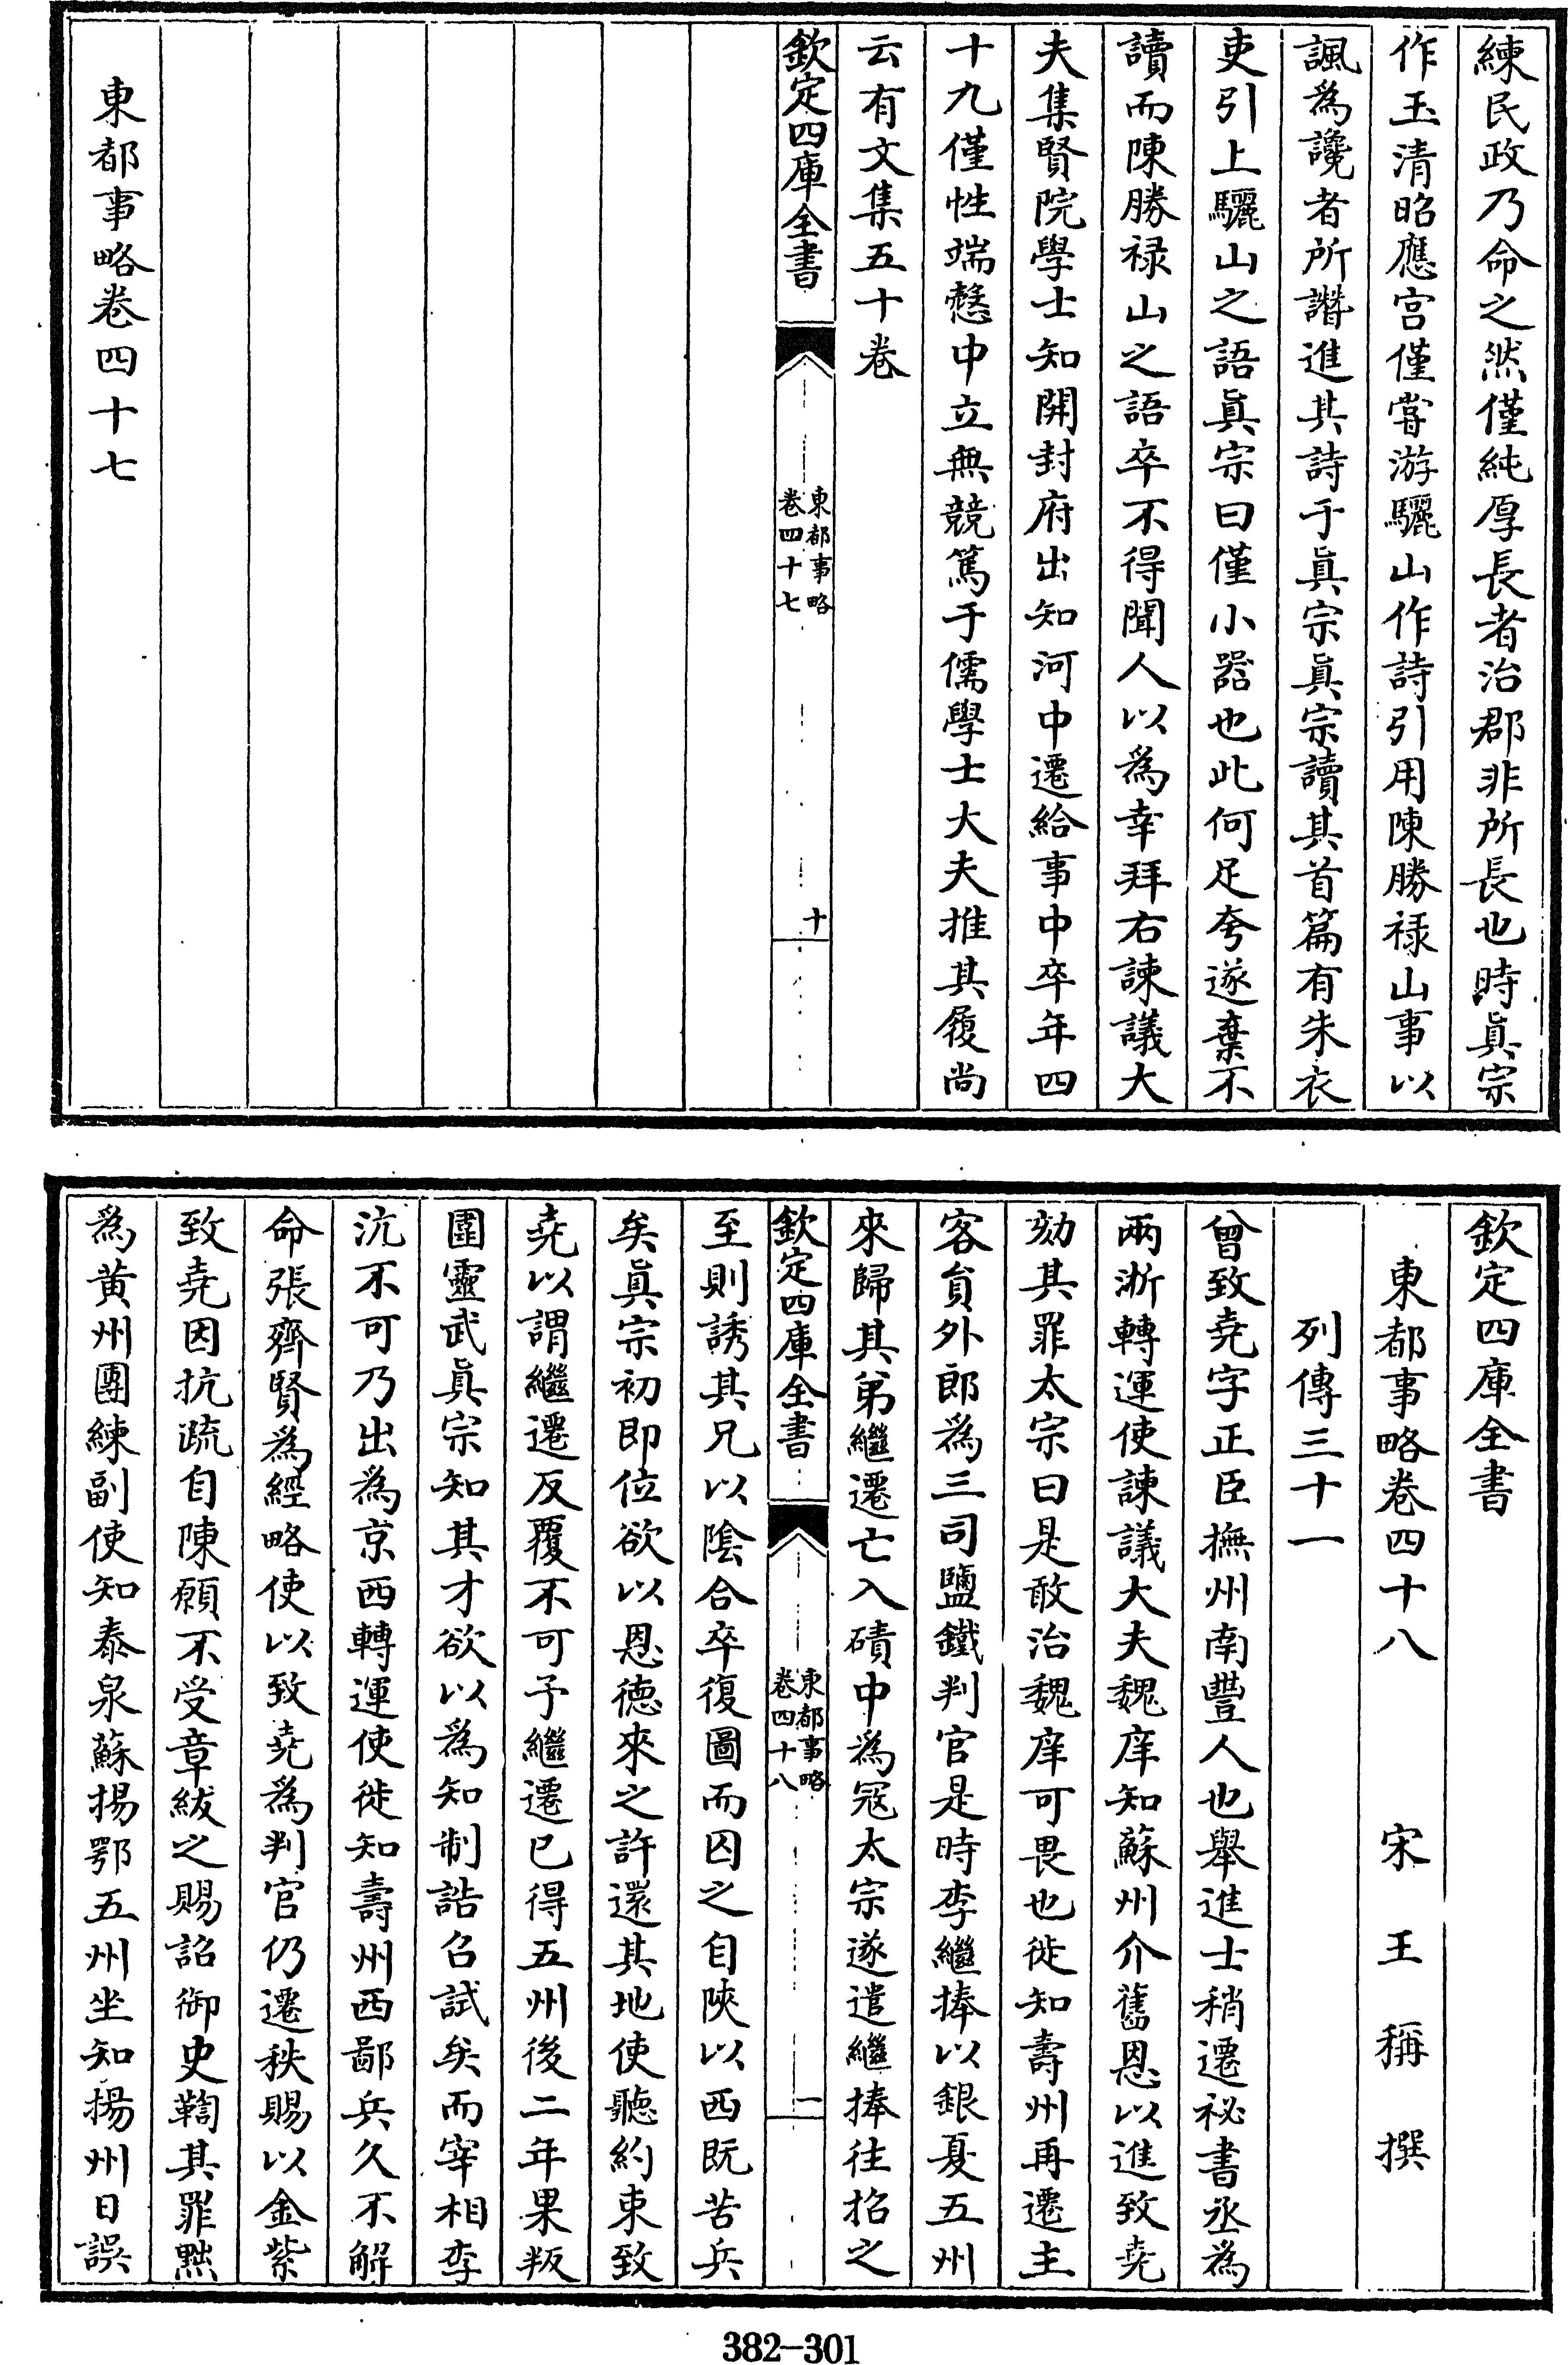 練民政乃命之然僅純厚長者治郡非所長也時真宗
作玉清昭應宫僅嘗游驪山作詩引用陳勝禄山事以
諷為讒者所譖進其詩于真宗真宗讀其首篇有朱衣
吏引上驪山之語真宗曰僅小器也此何足夸遂棄不
讀而陳勝禄山之語卒不得聞人以為幸拜右諫議大
夫集賢院學士知開封府出知河中遷給事中卒年四
十九僅性端慤中立無競篤于儒學士大夫推其履尚
云有文集五十卷
欽定四庫全書
東都事略
卷四十七
十
東都事略卷四十七
欽定四庫全書
東都事略卷四十八
宋王稱撰
列傳三十一
曾致堯字正臣撫州南豐人也舉進士稍遷祕書丞為
兩浙轉運使諫議大夫魏庠知蘇州介舊恩以進致堯
劾其罪太宗曰是敢治魏庠可畏也徙知壽州再遷主
客員外郎為三司鹽鐵判官是時李繼捧以銀夏五州
來歸其弟繼遷亡入磧中為冦太宗遂遣繼捧往招之
欽定四庫全書
東都事略
卷四十八
一
至則誘其兄以陰合卒復圖而囚之自陜以西既苦兵
矣真宗初即位欲以恩德來之許還其地使聽約束致
堯以謂繼遷反覆不可予繼遷已得五州後二年果叛
圍靈武真宗知其才欲以為知制誥召試矣而宰相李
沆不可乃出為京西轉運使徙知壽州西鄙兵久不解
命張齊賢為經略使以致堯為判官仍遷秩賜以金紫
致堯因抗疏自陳願不受章紱之賜詔御史鞫其罪黜
為黄州團練副使知泰泉蘇揚鄂五州坐知揚州日誤
382-301